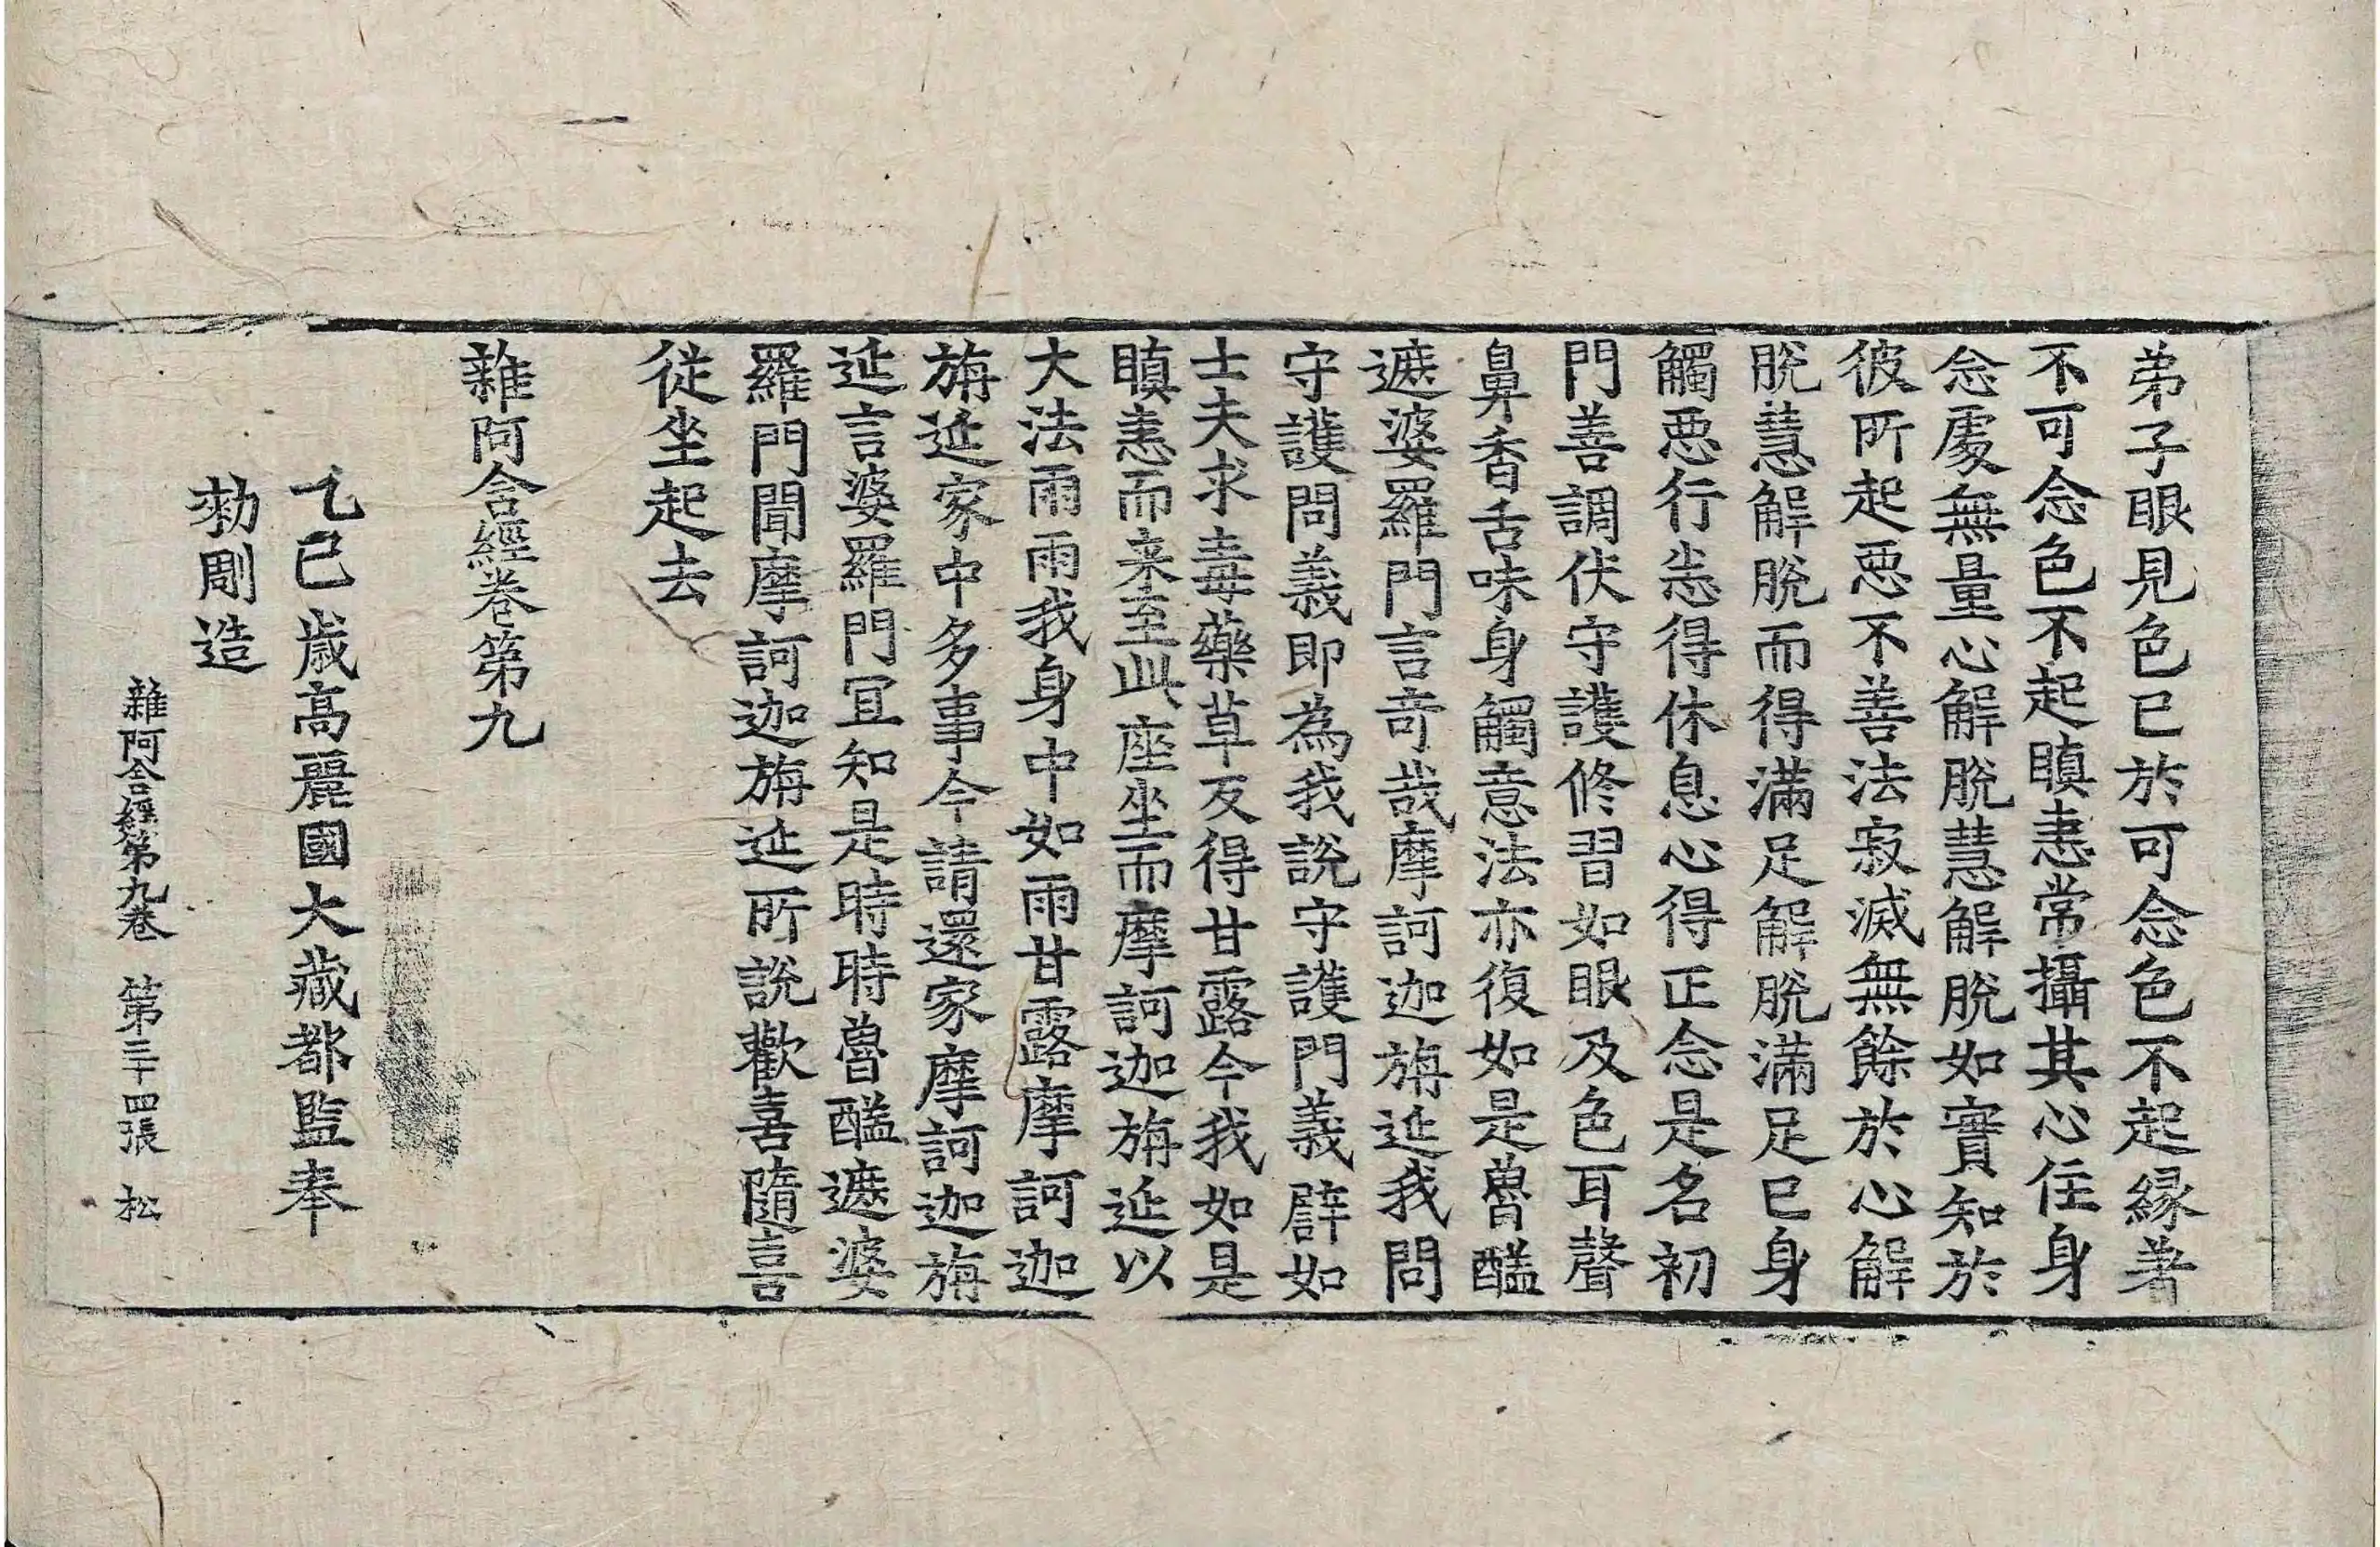 弟子眼見色已於可念色不起緣著
不可念色不起瞋恚常攝其心住身
念處無量心解脫慧解脫如實知於
彼所起惡不善法寂滅無餘於心解
脫慧解脫而得滿足解脫滿足已身
觸惡行悉得休息心得正念是名初
門善調伏守護修習如眼及色耳聲
鼻香舌味身觸意法亦復如是魯醯
遮婆羅門言奇哉摩訶迦旃延我問
守護問義即為我說守護門義譬如
士夫求毒藥草反得甘露今我如是
瞋恚而来至此座坐而摩訶迦旃延以
大法雨雨我身中如雨甘露摩訶迦
旃延家中多事今請還家摩訶迦旃
延言婆羅門冝知是時時魯醯遮婆
羅門聞摩訶迦旃延所說歡喜隨喜
從坐起去
雜阿含經卷第九
乙巳歲高麗國大藏都監奉
勑彫造
雜阿含經第九卷 第三十四張 松